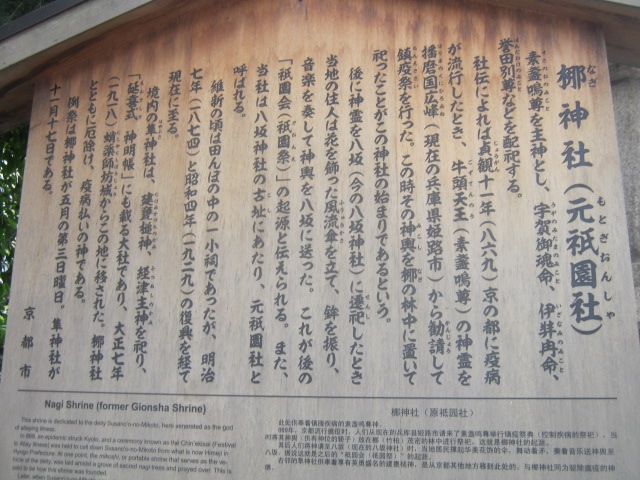 梛神社（元祇園社）
素盞嗚尊を主神とし、宇賀御魂命、伊弉冉命、
誉田別尊などを配祀する。
社伝によれば貞観十一年（八六九）京の都に疫病
が流行したとき、牛頭天王（素盞嗚尊）の神霊を
播磨国広峰（現在の兵庫県姫路市）から勧請して
鎮疫祭を行った。この時その神輿を梛の林中に置いて
祀ったことがこの神社の始まりであるという。
後に神霊を八坂（今の八坂神社）に遷祀したとき
当地の住人は花を飾った風流傘を立て、鉾を振り、
音楽を奏して神輿を八坂に送った。これが後の
「祇園会（祇園祭）」の起源と伝えられる。また、
当社は八坂神社の古址にあたり、元祇園社と
呼ばれる。
維新の頃は田んぼの中の一小祠であったが、明治
七年（一八七四）と昭和四年（一九二九）の復興を経て
現在に至る。
境内の隼神社は、建甕槌神、経津主神を祀り、
「延喜式、神明帳」にも載る大社であり、大正七年
（一九一八）蛸薬師坊城からこの地に移された。梛神社
とともに厄除け、疫病払いの神である。
例祭は梛神社が五月の第三日曜日。隼神社が
十一月十七日である。
京都市
Nagi Shrine (former Gionsha Shrine)
This shrine is dedicated to the deity Susano'o-no-Mikoto, here venerated as the god
of allaying illness.
In 869, an epidemic struck Kyoto, and a ceremony known as the Chin'ekisai (Festival
to Allay Illness) was held to call down Susano'o-no-Mikoto from what is now Himeji in
Hyogo Prefecture. At one point, the mikoshi, or portable shrine that serves as the ve-
hicle of the deity, was laid amidst a grove of sacred nagi trees and prayed over. This is
said to be how this shrine was founded.
Later, when Susano'o-no-Mikoto
梛神社（原祗园社）
此处供奉着镇疫病的素盏鸣尊神。
869年，京都流行瘟疫时，人们从现在的兵库县姬路市请来了素盏鸣尊举行镇疫祭典（控制疾病的祭祀），当